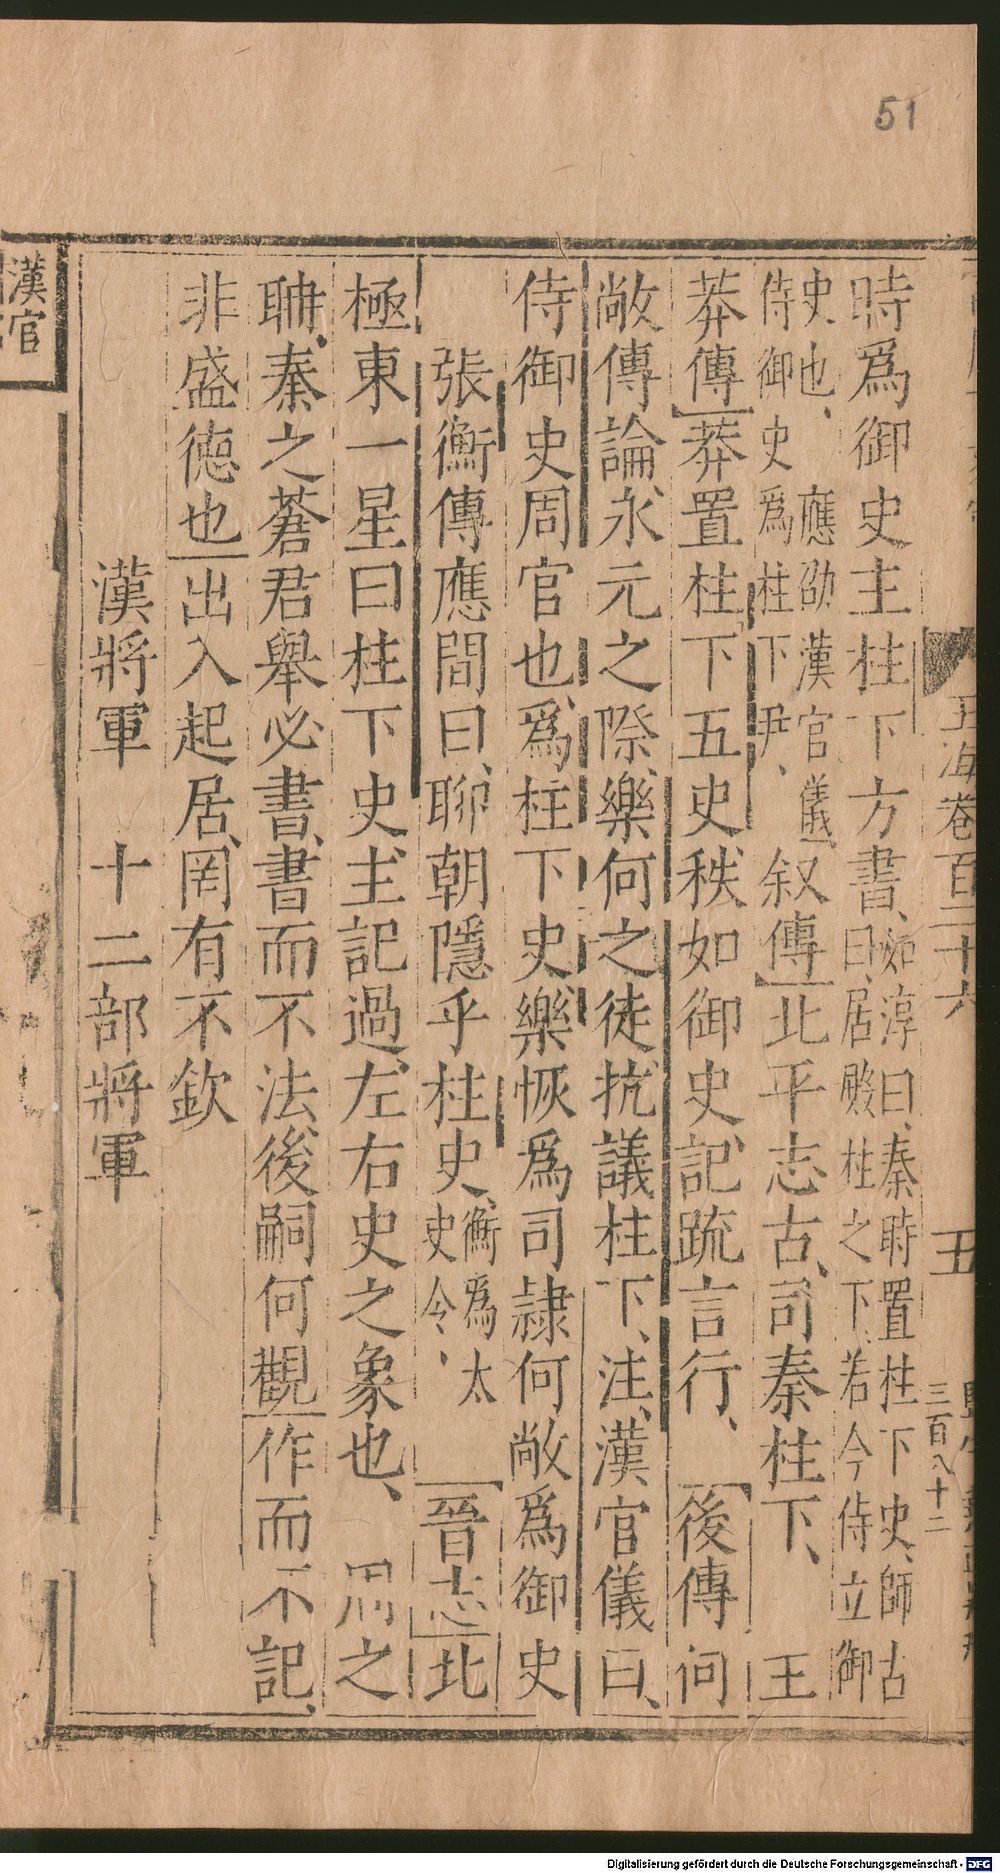 51
時爲御史主柱下方書、如淳曰、秦時置柱下史、師古曰、居殿柱之下、若今侍立御
史也、應劭漢官儀、侍御史爲柱下尹、叙傳北平志古、司秦柱下、王
莽傳莽置柱下五史、秩如御史、記疏言行、後傳何
敞傳論、永元之際、樂何之徒、抗議柱下、注、漢官儀曰、
侍御史周官也、爲柱下史、樂恢爲司隷何敞爲御史
張衡傳應閒曰、聃朝隱乎柱史、衡爲太史令、晉志北
極東一星曰柱下史、主記過、左右史之象也、周之
聃、秦之蒼君舉必書、書而不法、後嗣何觀作而不記、
非盛德也出入起居、罔有不欽
漢將軍 十二部將軍
玉海卷百二十六
五
三百八十二
漢官
Digitalisierung gefördert durch die Deutsche Forschungsgemeinschaft - DFG